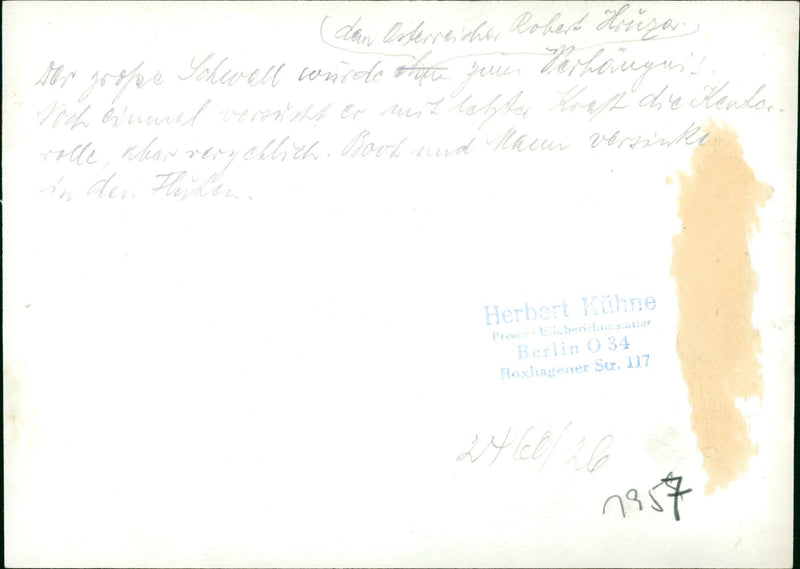 dem Österreicher Robert
Der große Schwall wurde ihm zum Verhängnis.
Noch einmal versucht er mit letzter Kraft die Kenter-
rolle, aber vergeblich. Boot und Mann versinken
in den Fluten.
Herbert Kühne
Presse-Bildberichterstatter
Berlin O 34
Boxhagener Str. 117
1957